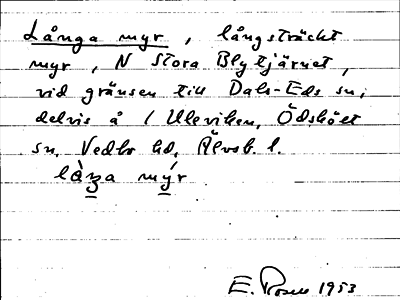 Långa myr, långsträckt
myr, N Stora Blytjärnet,
vid gränsen till Dals-Eds sn,
delvis å 1 Uleviken, Ödskölt
sn, Vedbo hd, Älvsb. l.
làŋa mýr
E. Rosell 1953